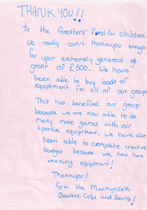 THANKYOU!!
To the foresters' fund for children
We really can't thankyou enough
for your extremely generous of
grant of £500. We have
been able to buy loads of
equipment for all of our groups
This has benefited our group
because we are now able to do
many more games with our
sporting equiptment, we have also
been able to complete creative
badges because we now have
amazing equiptment!
Thankyou!
from the Machynlleth
Beavers Cubs and Scouts!